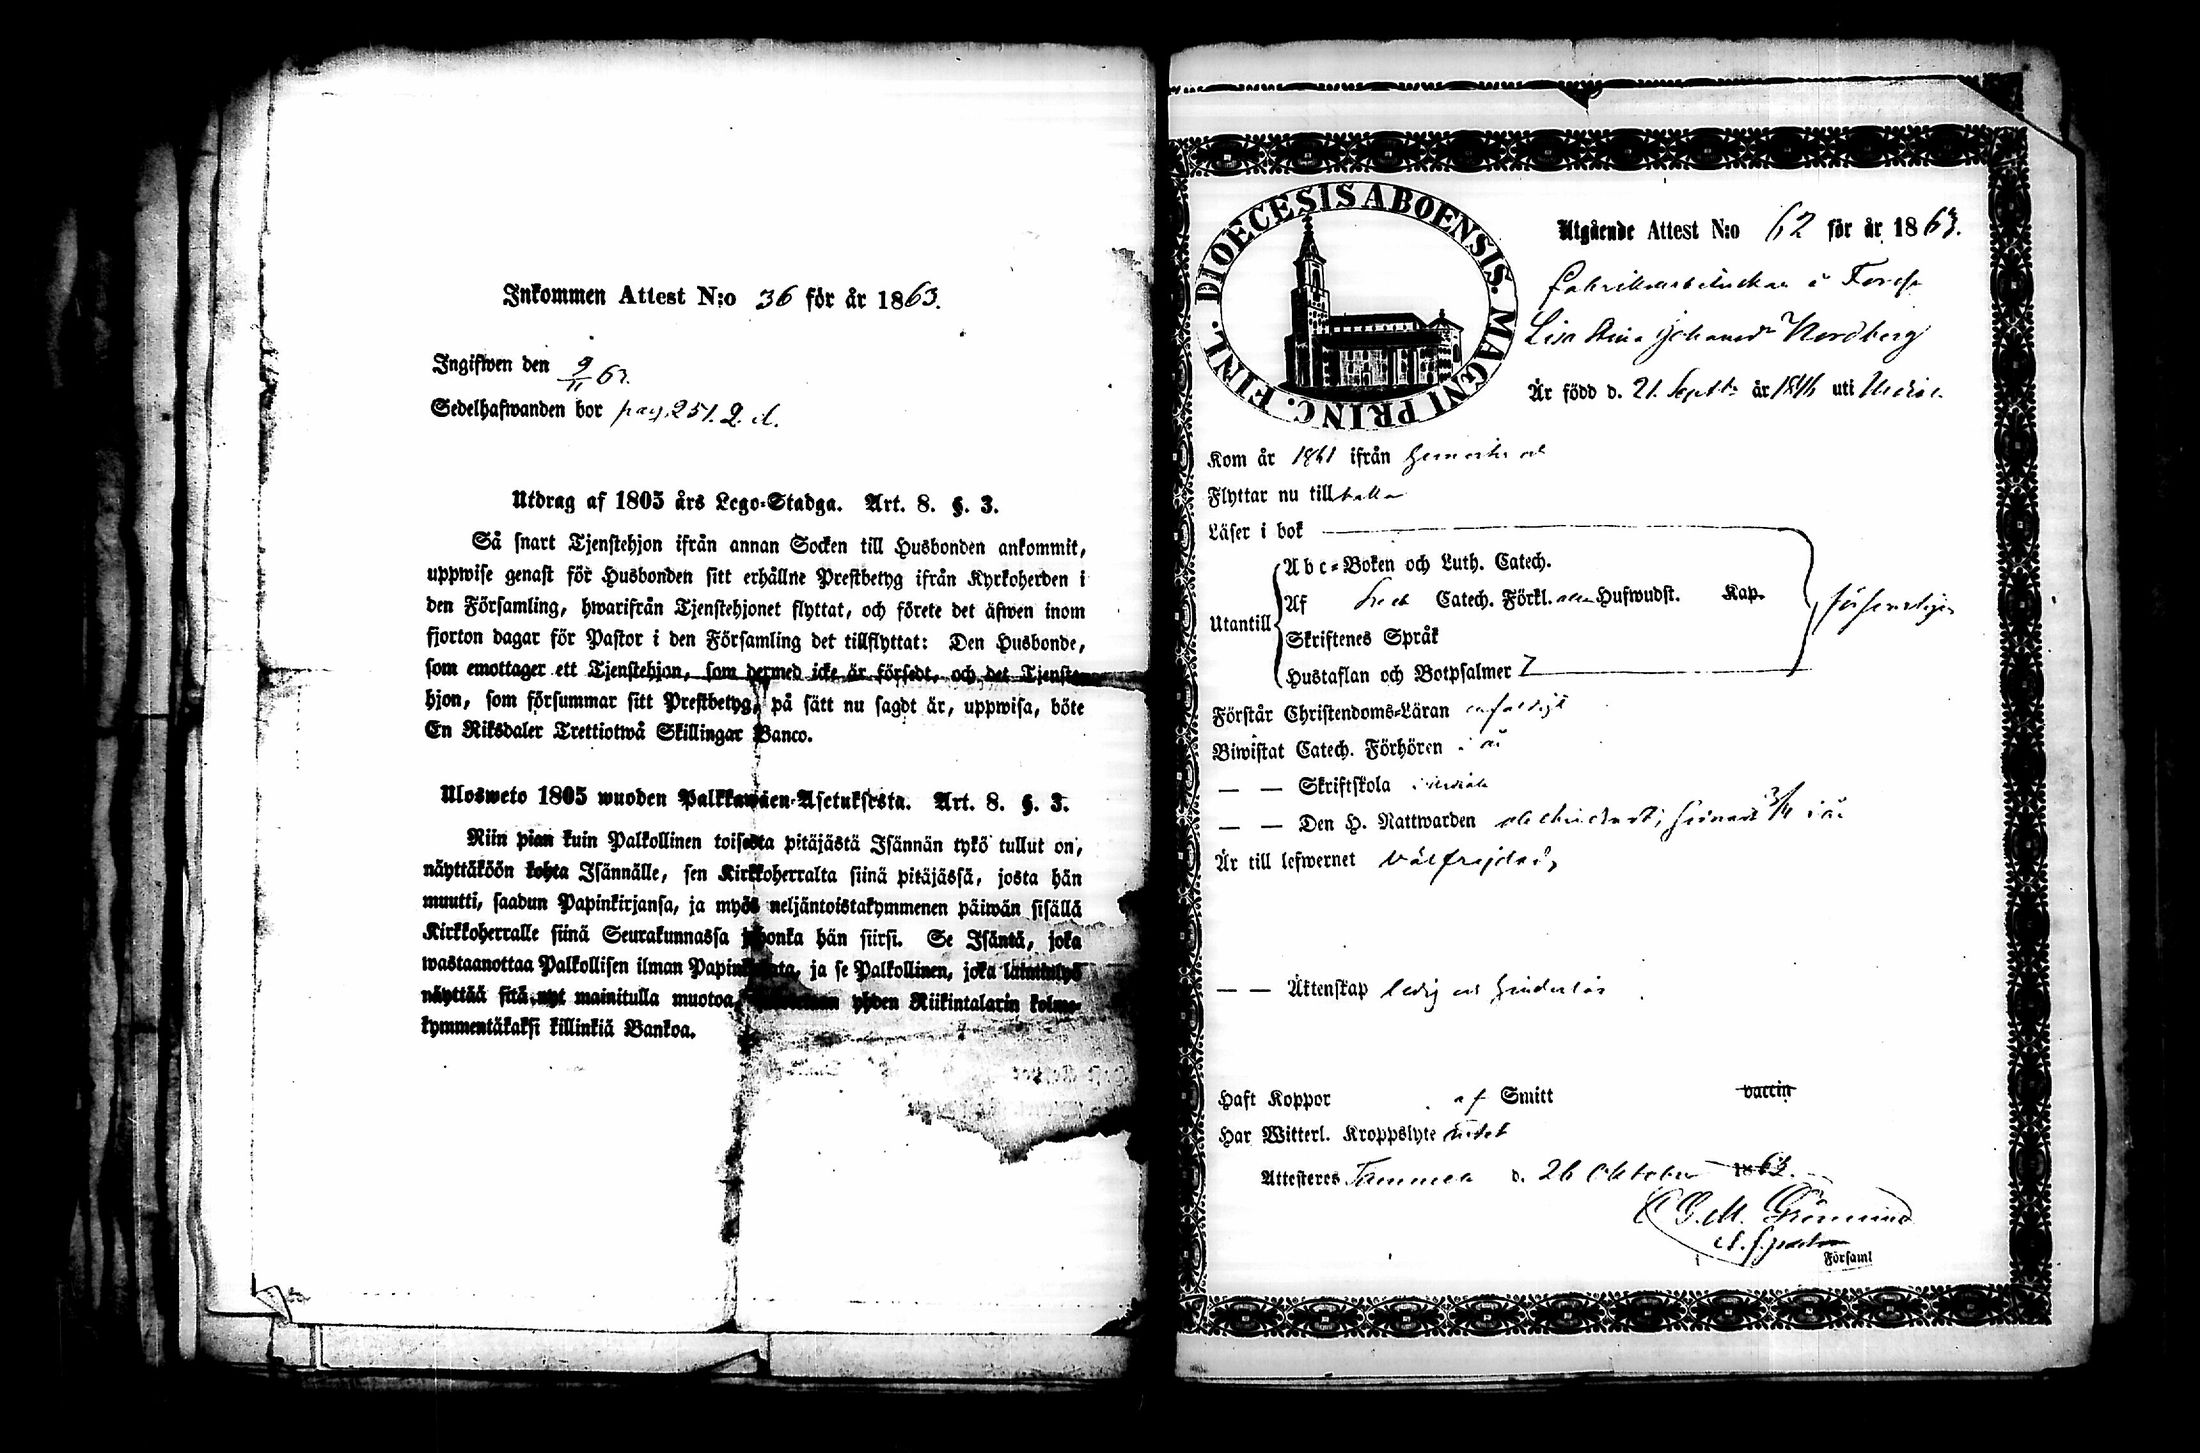 Inkommen Attest N:o 36 för år 1863.
Ingifwen den 9/11 63.
Sedelhafwanden bor pag. 251. 2. d.
Utdrag af 1805 års Lego-Stadga. Art. 8. §. 3.
Så snart Tjenstehjon ifrån annan Socken till Husbonden ankommit,
uppwise genast för Husbonden sitt erhållne Prestbetyg ifrån Kyrkoherden i
den Församling, hwarifrån Tjenstehjonet flyttat, och förete det äfwen inom
fjorton dagar för Pastor i den Församling det tillflyttat: Den Husbonde,
som emottager ett Tjenstehjon, som dermed icke är försedt, och det Tjenste-
hjon, som försummar sitt Prestbetyg, på sätt nu sagdt är, uppwisa, böte
En Riksdaler Trettiotwå Skillingar Banco.
Ulosweto 1805 wuoden Palkkawäen-Asetuksesta. Art. 8. §. 3.
Niin pian kuin Palkollinen toisesta pitäjästä Isännän tykö tullut on,
näyttäköön kohta Isännälle, sen Kirkkoherralta siinä pitäjässä, josta hän
muutti, saadun Papinkirjansa, ja myös neljäntoistakymmenen päiwän sisällä
Kirkkoherralle siinä Seurakunnassa johonka hän siirsi. Se Isäntä, joka
wastaanottaa Palkollisen ilman Papinkirjata, ja se Palkollinen, joka laiminlyö
näyttää sitä nyt mainitulla muotoa, yhden Riikintalarin kolme-
kymmentäkaksi killinkiä Bankoa.
DIOECESIS ABOENSIS. MAGNI PRINC. FINL.
Utgående Attest N:o 62 för år 1863.
i Forssa
Lisa Stina Johansdr Nordberg
Är född d. 21. Septbr år 1846 uti
Kom år 1861 ifrån
Flyttar nu till
Läser i bok
Utantill
Abc-Boken och Luth. Catech.
Af Catech. Förkl. Hufwudst. Kap.
Skriftenes Språk
Hustaflan och Botpsalmer 7
Förstår Christendoms-Läran
Biwistat Catech. Förhören i år
— — Skriftskola
— — Den H. Nattwarden i år
Är till lefwernet välfrejdad,
— — Äktenskap ledig och hinderlös
Haft Koppor af Smitt vaccin
Har Witterl. Kroppslyte intet
Attesteres Tammela d. 26 Oktober 1863.
Församl